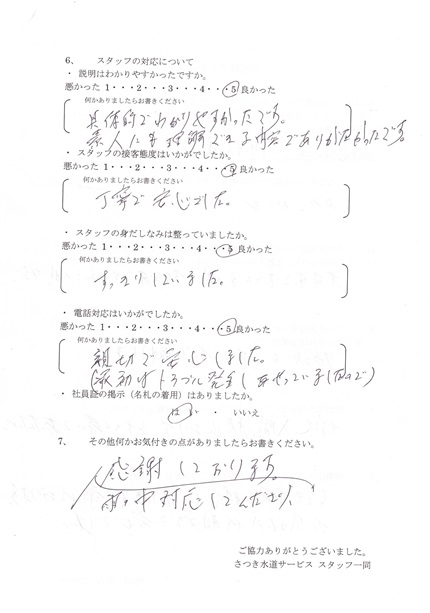 6、 スタッフの対応について
・ 説明はわかりやすかったですか。
悪かった 1・・・2・・・3・・・4・・・5 良かった
何かありましたらお書きください
具体的でわかりやすかったです。
素人にも理解できる内容でありがたかったです
・ スタッフの接客態度はいかがでしたか。
悪かった 1・・・2・・・3・・・4・・・5 良かった
何かありましたらお書きください
丁寧で安心でした。
・ スタッフの身だしなみは整っていましたか。
悪かった 1・・・2・・・3・・・4・・・5 良かった
何かありましたらお書きください
すっきりしていました。
・ 電話対応はいかがでしたか。
悪かった 1・・・2・・・3・・・4・・・5 良かった
何かありましたらお書きください
親切で安心しました。
トラブル発生し
・ 社員証の掲示（名札の着用）はありましたか。
はい ・ いいえ
7、 その他何かお気付きの点がありましたらお書きください。
感謝しております。
雨中対応して
ご協力ありがとうございました。
さつき水道サービス スタッフ一同